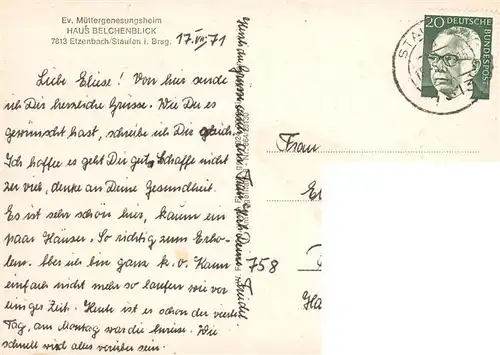 Ev. Müttergenesungsheim
HAUS BELCHENBLICK
7813 Etzenbach/Staufen i. Brsg.
17.VIII.71
Liebe Eliese! Von hier sende
ich Dir herzliche Grüsse. Wie Du es
gewünscht hast, schreibe ich Dir gleich.
Ich hoffe es geht Dir gut, schaffe nicht
zu viel, denke an Deine Gesundheit.
Es ist sehr schön hier, kaum ein
paar Häuser. So richtig zum Erho-
len. Aber ich bin ganz k.o. Kann
einfach nicht mehr so laufen wie vor
einiger Zeit. Heute ist es schon der vierte
Tag, am Montag war die Anreise. Wie
schnell wird alles vorüber sein.
Grüsse
Deine
758
Frau
20 DEUTSCHE
BUNDESPOST